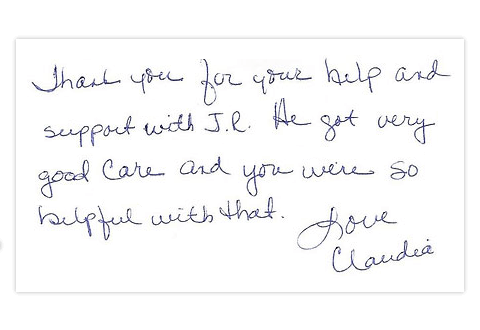 Thank you for your help and
support with J.R. He got very
good care and you were so
helpful with that.
Love
Claudia